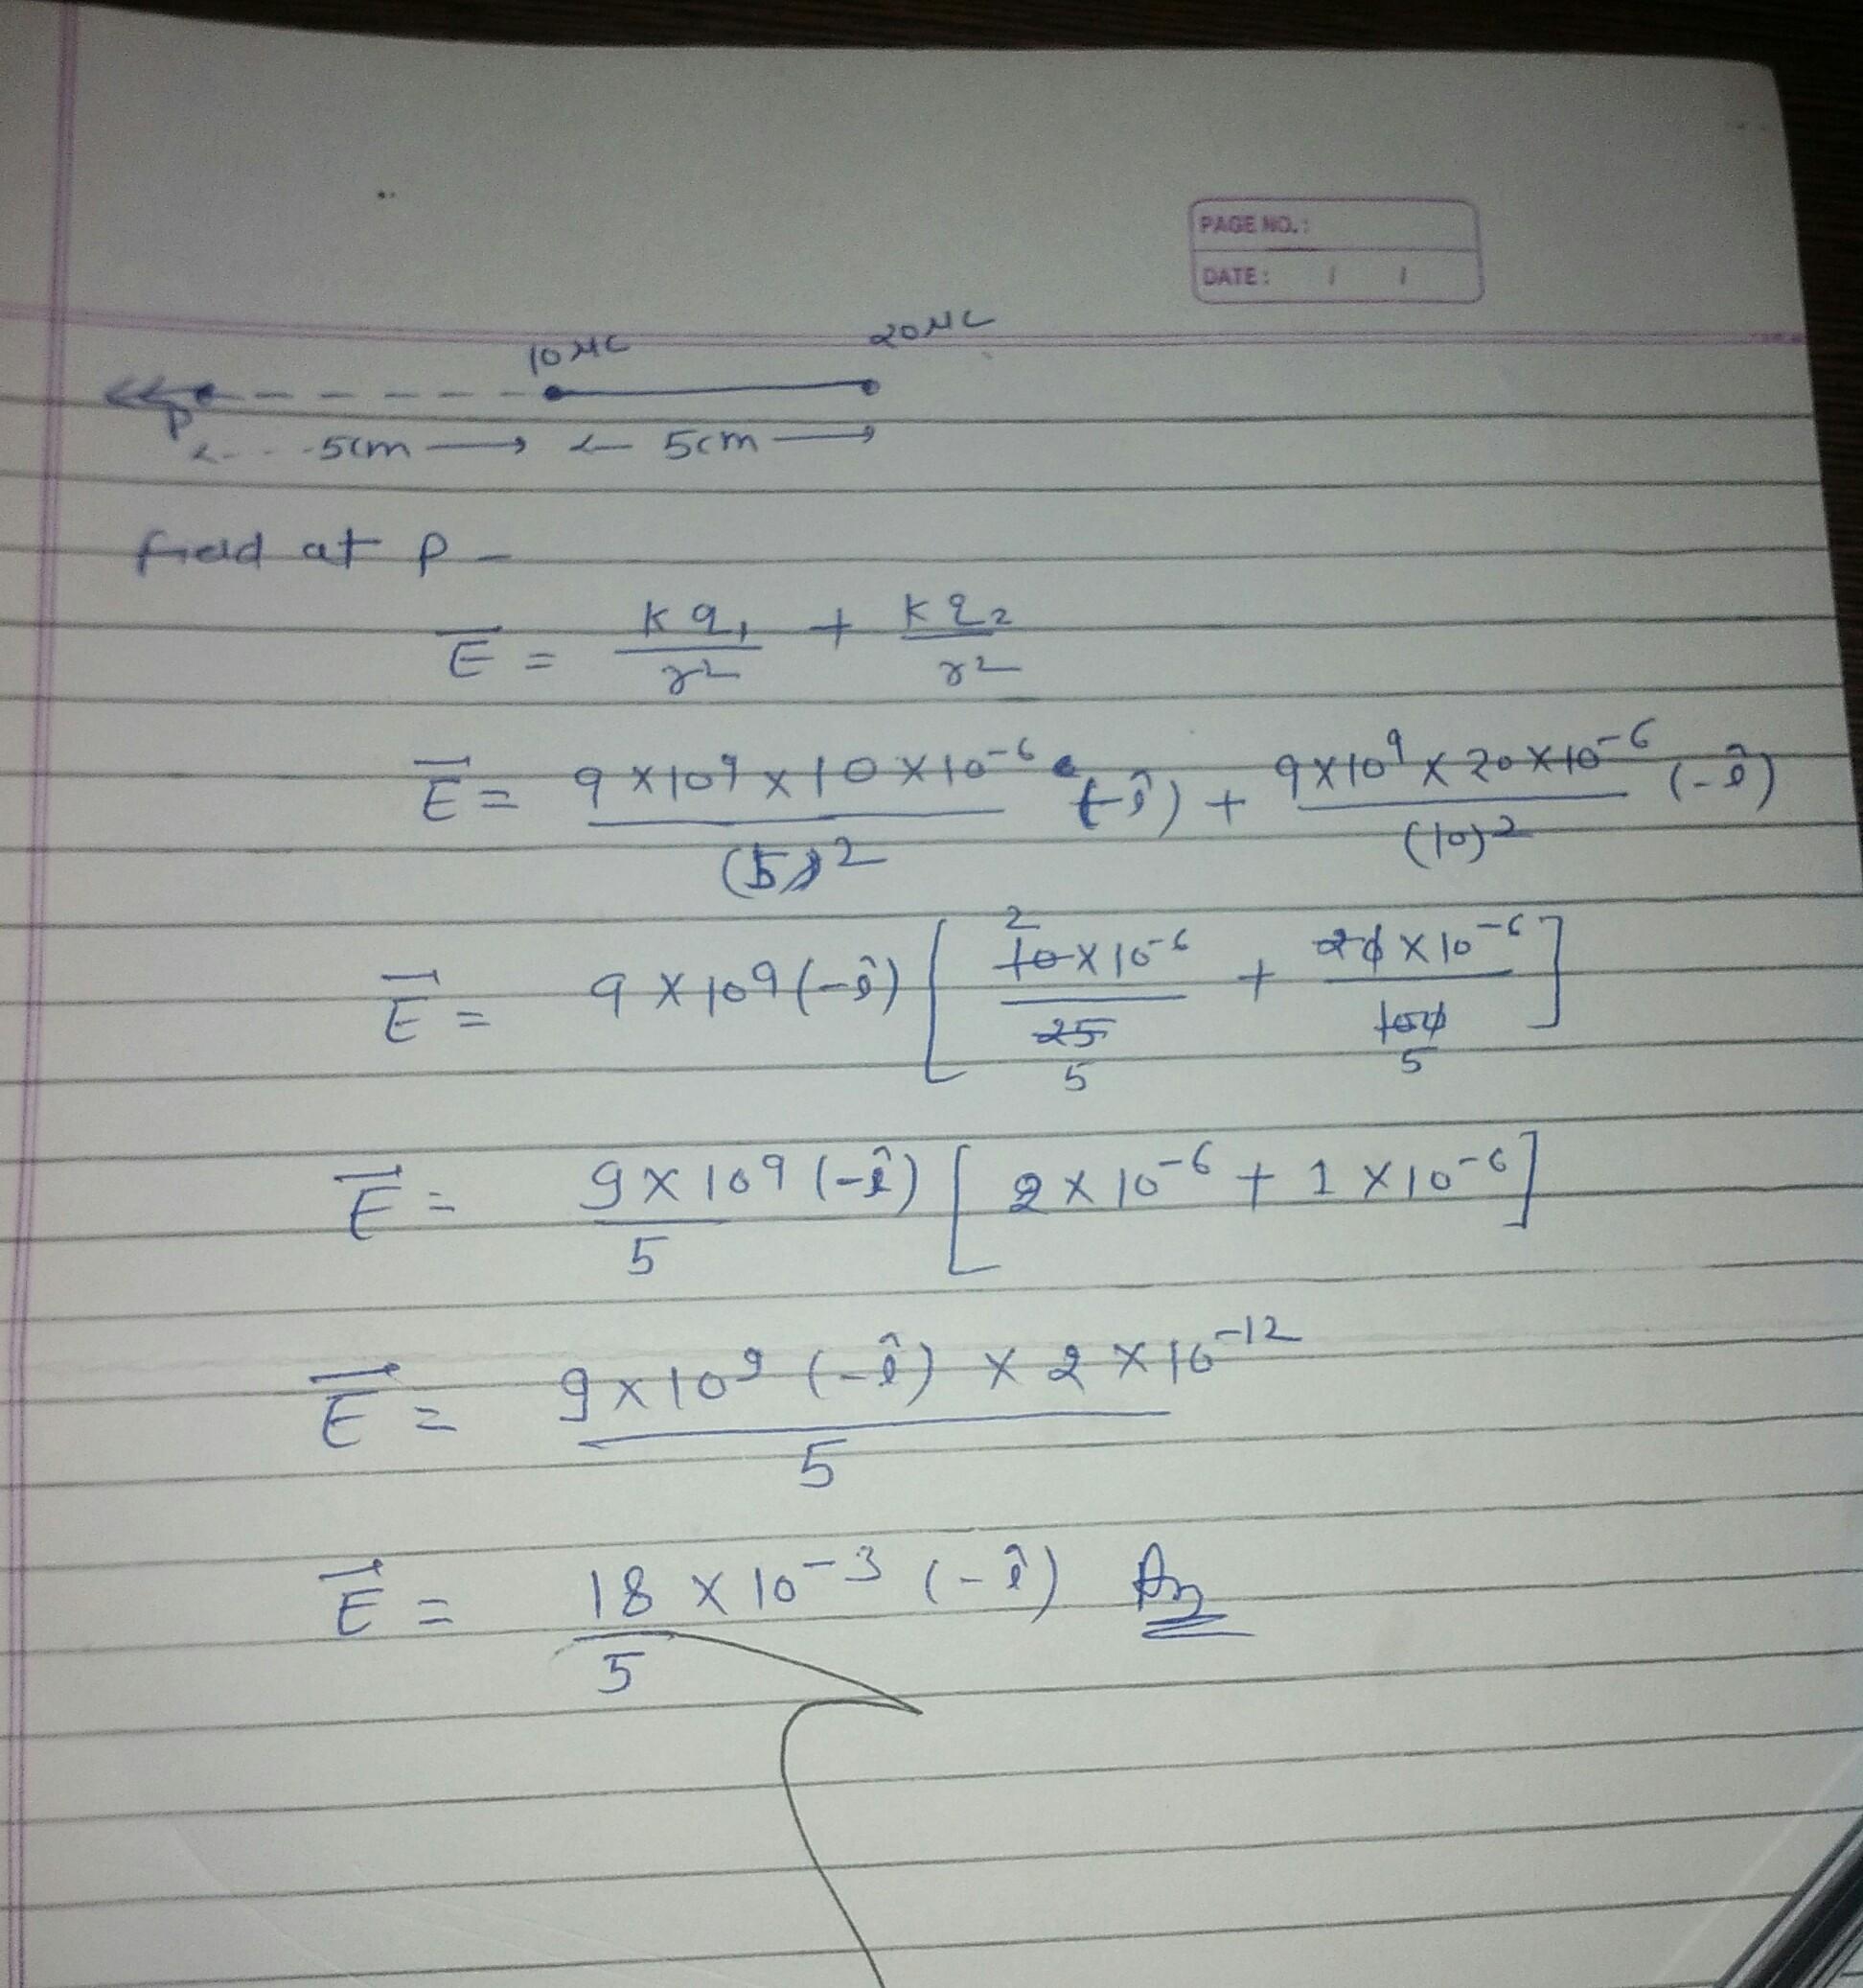 PAGE NO.:
DATE: / /
10 μC 20 μC
P
5cm 5cm
field at P -
E = kq₁/r² + kq₂/r²
E = 9×10⁹×10×10⁻⁶/(5)² (-î) + 9×10⁹×20×10⁻⁶/(10)² (-î)
E = 9×10⁹(-î) [ 2 10×10⁻⁶/25 5 + 20×10⁻⁶/100 5 ]
E = 9×10⁹(-î)/5 [ 2×10⁻⁶ + 1×10⁻⁶ ]
E = 9×10⁹(-î) × 2×10⁻¹²/5
E = 18×10⁻³/5 (-î) Ans